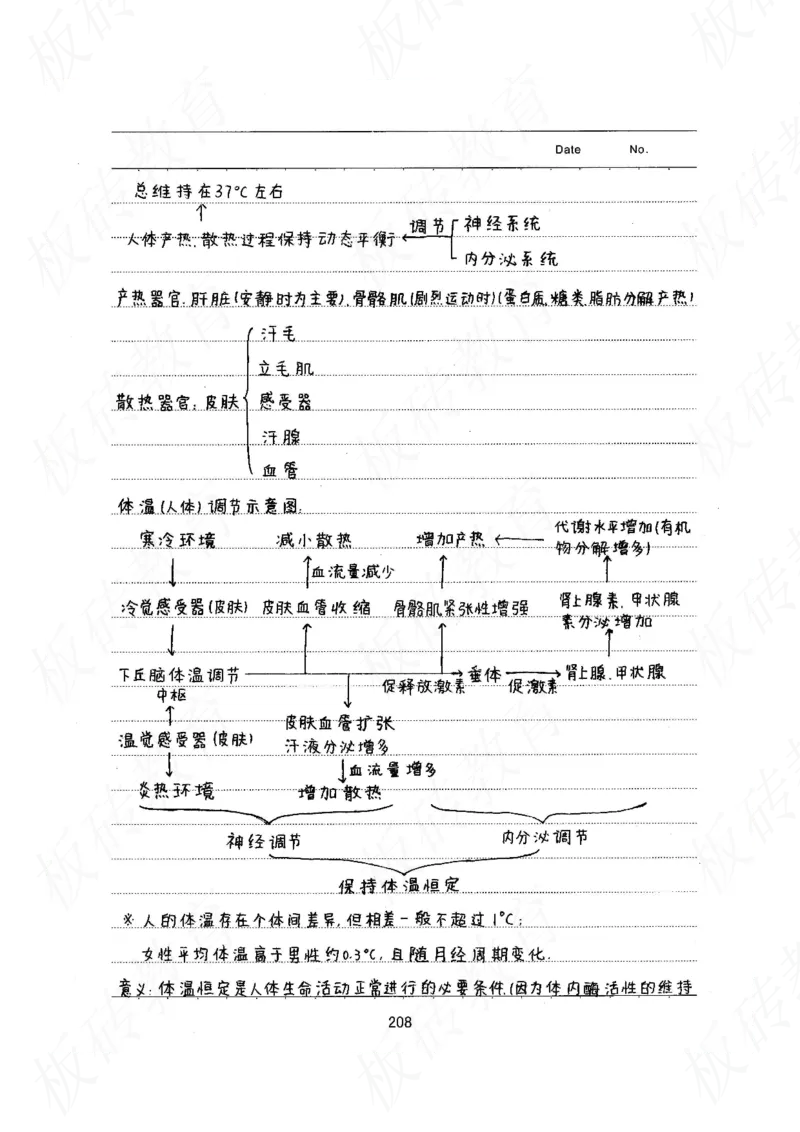 Date No.
总维持在37°C左右
↑
人体产热、散热过程保持动态平衡 ← 调节 神经系统
内分泌系统
产热器官:肝脏(安静时为主要)、骨骼肌(剧烈运动时)(蛋白质、糖类、脂肪分解产热)
汗毛
立毛肌
散热器官:皮肤 感受器
汗腺
血管
体温(人体)调节示意图:
代谢水平增加(有机
寒冷环境 减小散热 增加产热 ← 物分解增多)
↓ ↑血流量减少 ↑ ↑
肾上腺素、甲状腺
冷觉感受器(皮肤) 皮肤血管收缩 骨骼肌紧张性增强 素分泌增加
↓ ↑ ↑ ↑
下丘脑体温调节 → 垂体 → 肾上腺、甲状腺
中枢 促释放激素 促激素
↑ ↓
皮肤血管扩张
温觉感受器(皮肤) 汗液分泌增多
↓ ↓血流量增多
炎热环境 增加散热
神经调节 内分泌调节
保持体温恒定
※ 人的体温存在个体间差异,但相差一般不超过1°C;
女性平均体温高于男性约0.3°C,且随月经周期变化.
意义:体温恒定是人体生命活动正常进行的必要条件.(因为体内酶活性的维持
208
板砖教育
板砖教育
板砖教育
板砖教育
板砖教育
板砖教育